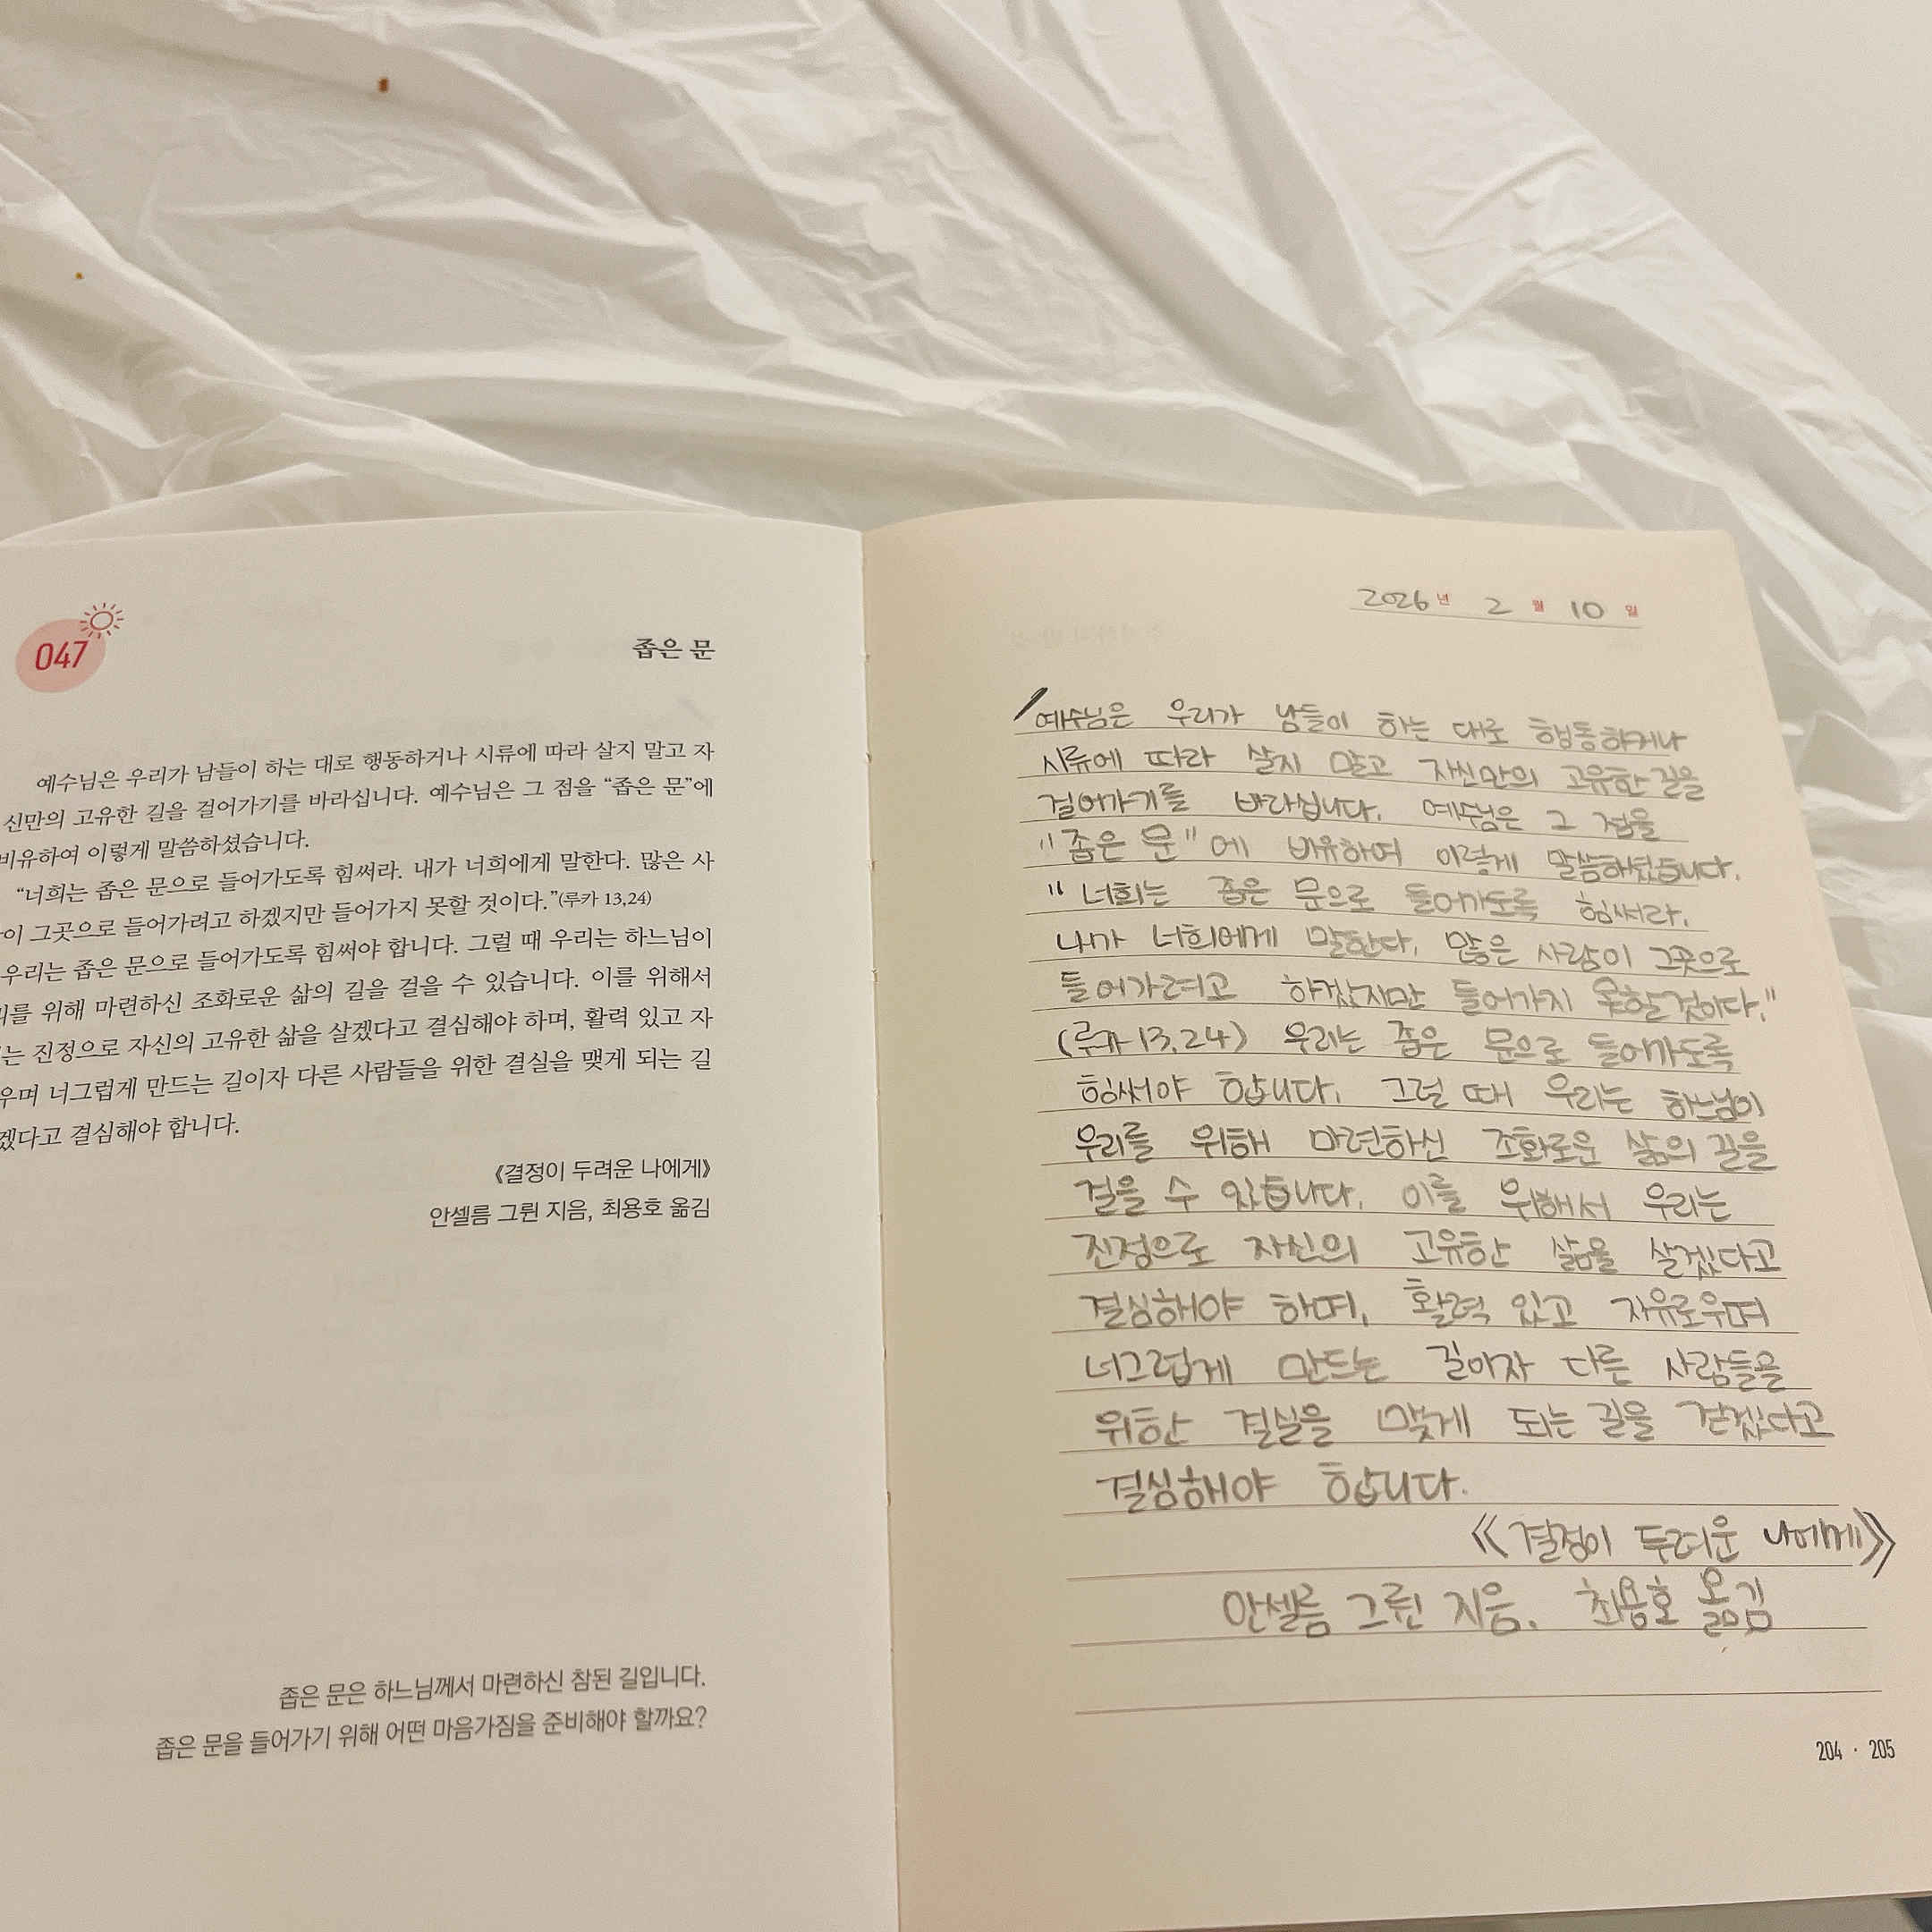 047
좁은 문
예수님은 우리가 남들이 하는 대로 행동하거나 시류에 따라 살지 말고 자
신만의 고유한 길을 걸어가기를 바라십니다. 예수님은 그 점을 “좁은 문”에
비유하여 이렇게 말씀하셨습니다.
“너희는 좁은 문으로 들어가도록 힘써라. 내가 너희에게 말한다. 많은 사
이 그곳으로 들어가려고 하겠지만 들어가지 못할 것이다.”(루카 13,24)
우리는 좁은 문으로 들어가도록 힘써야 합니다. 그럴 때 우리는 하느님이
위해 마련하신 조화로운 삶의 길을 걸을 수 있습니다. 이를 위해서
는 진정으로 자신의 고유한 삶을 살겠다고 결심해야 하며, 활력 있고 자
우며 너그럽게 만드는 길이자 다른 사람들을 위한 결실을 맺게 되는 길
겠다고 결심해야 합니다.
《결정이 두려운 나에게》
안셀름 그륀 지음, 최용호 옮김
좁은 문은 하느님께서 마련하신 참된 길입니다.
좁은 문을 들어가기 위해 어떤 마음가짐을 준비해야 할까요?
2026년 2월 10일
예수님은 우리가 남들이 하는 대로 행동하거나
시류에 따라 살지 말고 자신만의 고유한 길을
걸어가기를 바라십니다. 예수님은 그 점을
"좁은 문"에 비유하여 이렇게 말씀하셨습니다.
"너희는 좁은 문으로 들어가도록 힘써라.
내가 너희에게 말한다. 많은 사람이 그곳으로
들어가려고 하겠지만 들어가지 못할 것이다."
(루카 13,24) 우리는 좁은 문으로 들어가도록
힘써야 합니다. 그럴 때 우리는 하느님이
우리를 위해 마련하신 조화로운 삶의 길을
걸을 수 있습니다. 이를 위해서 우리는
진정으로 자신의 고유한 삶을 살겠다고
결심해야 하며, 활력 있고 자유로우며
너그럽게 만드는 길이자 다른 사람들을
위한 결실을 맺게 되는 길을 걷겠다고
결심해야 합니다.
《결정이 두려운 나에게》
안셀름 그륀 지음. 최용호 옮김
204 · 205